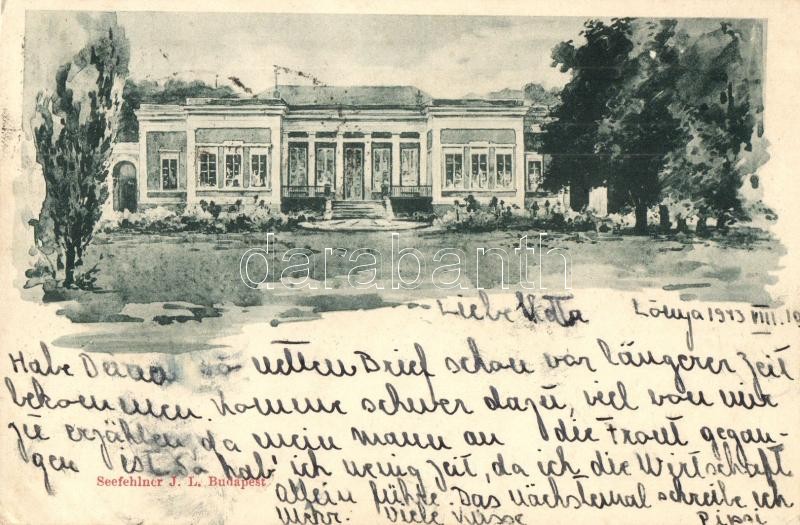 darabanth
Liebe
Lónya 1943 VIII. 19
Habe so netten Brief schon vor längerer Zeit
bekommen. Komme schwer dazu, viel von mir
zu erzählen da mein Mann an die Front gegan-
gen ist. So hab' ich wenig Zeit, da ich die Wirtschaft
Seefehlner J. L. Budapest
allein führe. Das nächstemal schreibe ich
mehr. Viele Küsse Pipsi